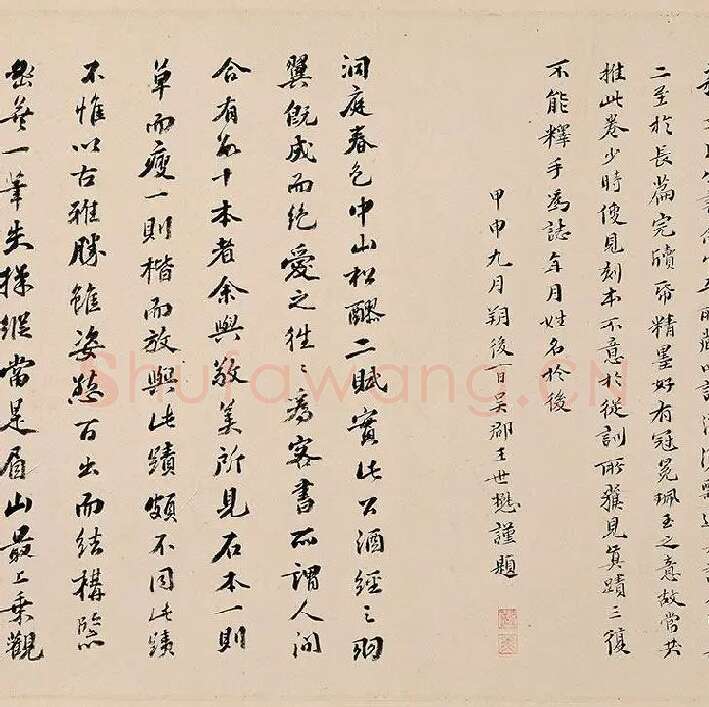 二至於長篇完牘帋精墨好有冠冕珮玉之意故當共
推此卷少時僅見刻本不意於從訓所獲見真蹟三復
不能釋手為誌年月姓名於後
甲申九月朔後一日吳郡王世懋謹題
洞庭春色中山松醪二賦實此公酒經之羽
翼旣成而絕愛之往〻為客書所謂人間
合有數十本者余與敬美所見石本一則
草而瘦一則楷而放與此蹟頗不同此蹟
不惟以古雅勝雖姿態百出而結構緊
密無一筆失操縱當是眉山最上乘觀
Shufawang.CN